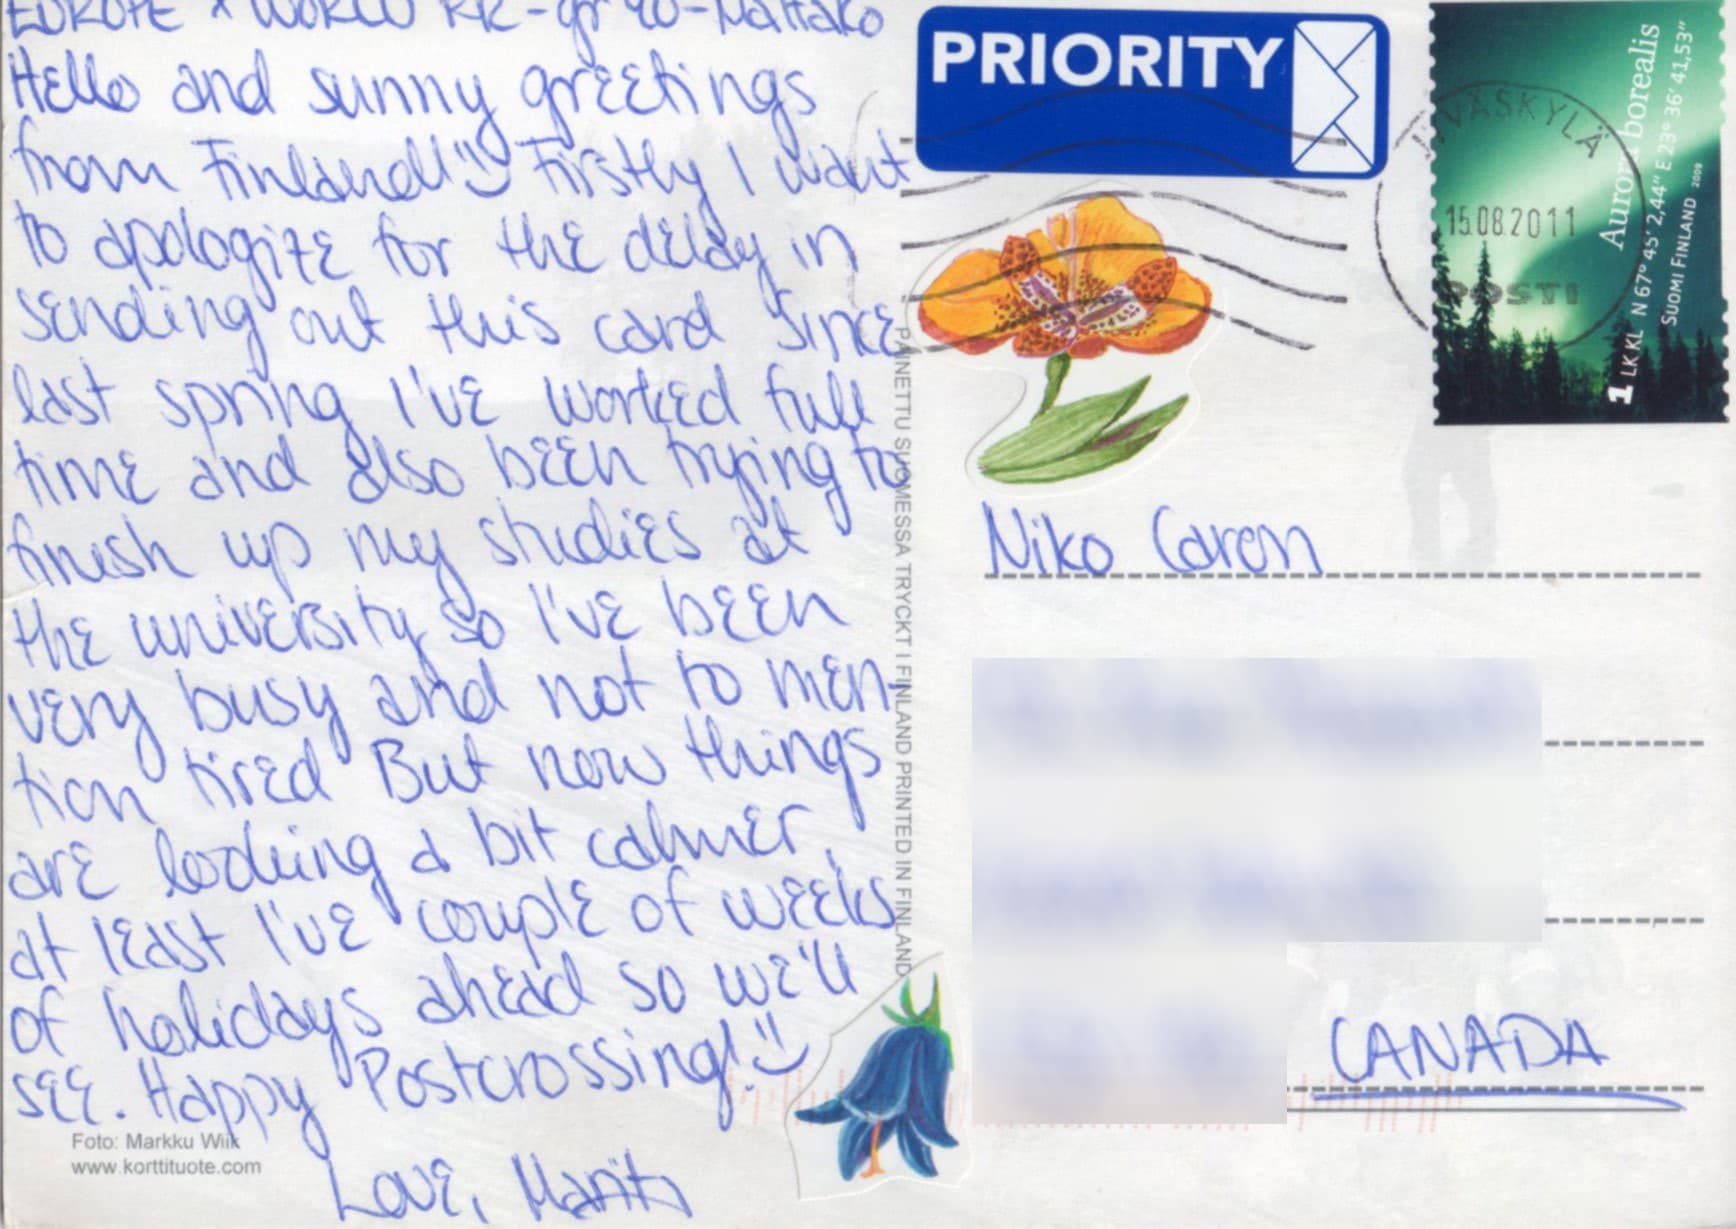 EUROPE x WORLD RR - gr 40 - Maltako
Hello and sunny greetings
from Finland!! Firstly I want
to apologize for the delay in
sending out this card. Since
last spring I've worked full
time and also been trying to
finish up my studies at
the university, so I've been
very busy and not to men-
tion tired. But now things
are looking a bit calmer,
at least I've couple of weeks
of holidays ahead so we'll
see. Happy Postcrossing!
Love,
Foto: Markku Wiik
www.korttituote.com
PAINETTU SUOMESSA TRYCKT I FINLAND PRINTED IN FINLAND
PRIORITY
JYVÄSKYLÄ
15.08.2011
POSTI
Aurora borealis
1 LK KL N 67° 45' 2,44" E 23° 36' 41,53"
SUOMI FINLAND 2009
Niko Caron
CANADA